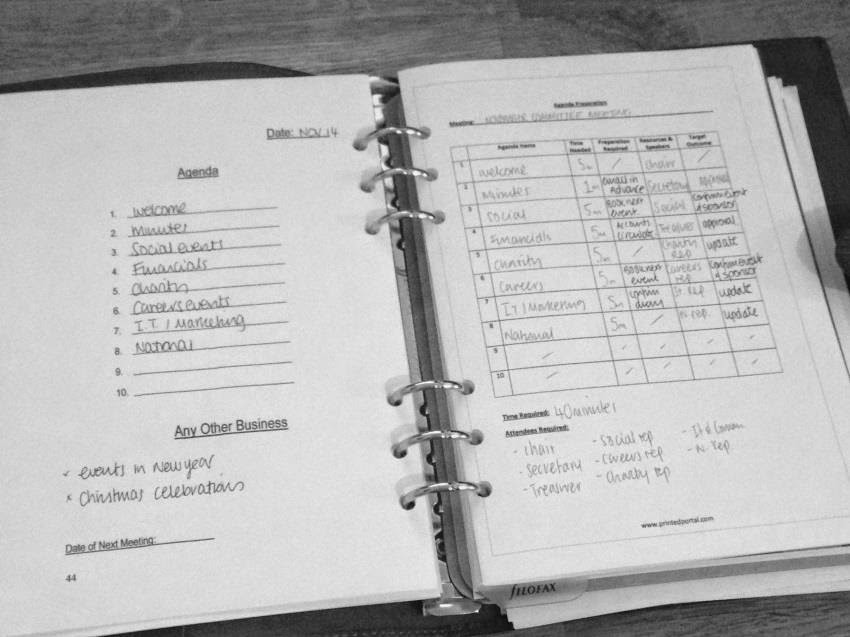 Date: NOV.14
Agenda
1. Welcome
2. Minutes
3. Social events
4. Financials
5. Charity
6. Careers events
7. I.T. / Marketing
8. National
9.
10.
Any Other Business
x events in New year
x Christmas celebrations
Date of Next Meeting:
44
Agenda Preparation
Meeting: NOVEMBER COMMITTEE MEETING
Agenda Items Time Needed Preparation Required Resources & Speakers Target Outcome
1 Welcome 5m / Chair /
2 Minutes 1m email in Advance Secretary approval
3 Social 5m Book next event Social Confirm event & sponsor
4 Financials 5m Accounts circulate Treasurer approval
5 Charity 5m / Charity rep update
6 Careers 5m Book next event Careers rep Confirm event & sponsor
7 I.T / Marketing 5m It. Rep update
8 National 5m / N. rep. update
9 / / / / /
10 / / / / /
Time Required: 40 minutes
Attendees Required:
- Chair - Social rep - It & Comm
- Secretary - Careers rep - N. Rep
- Treasurer - Charity rep
www.printedportal.com
fILOFAX